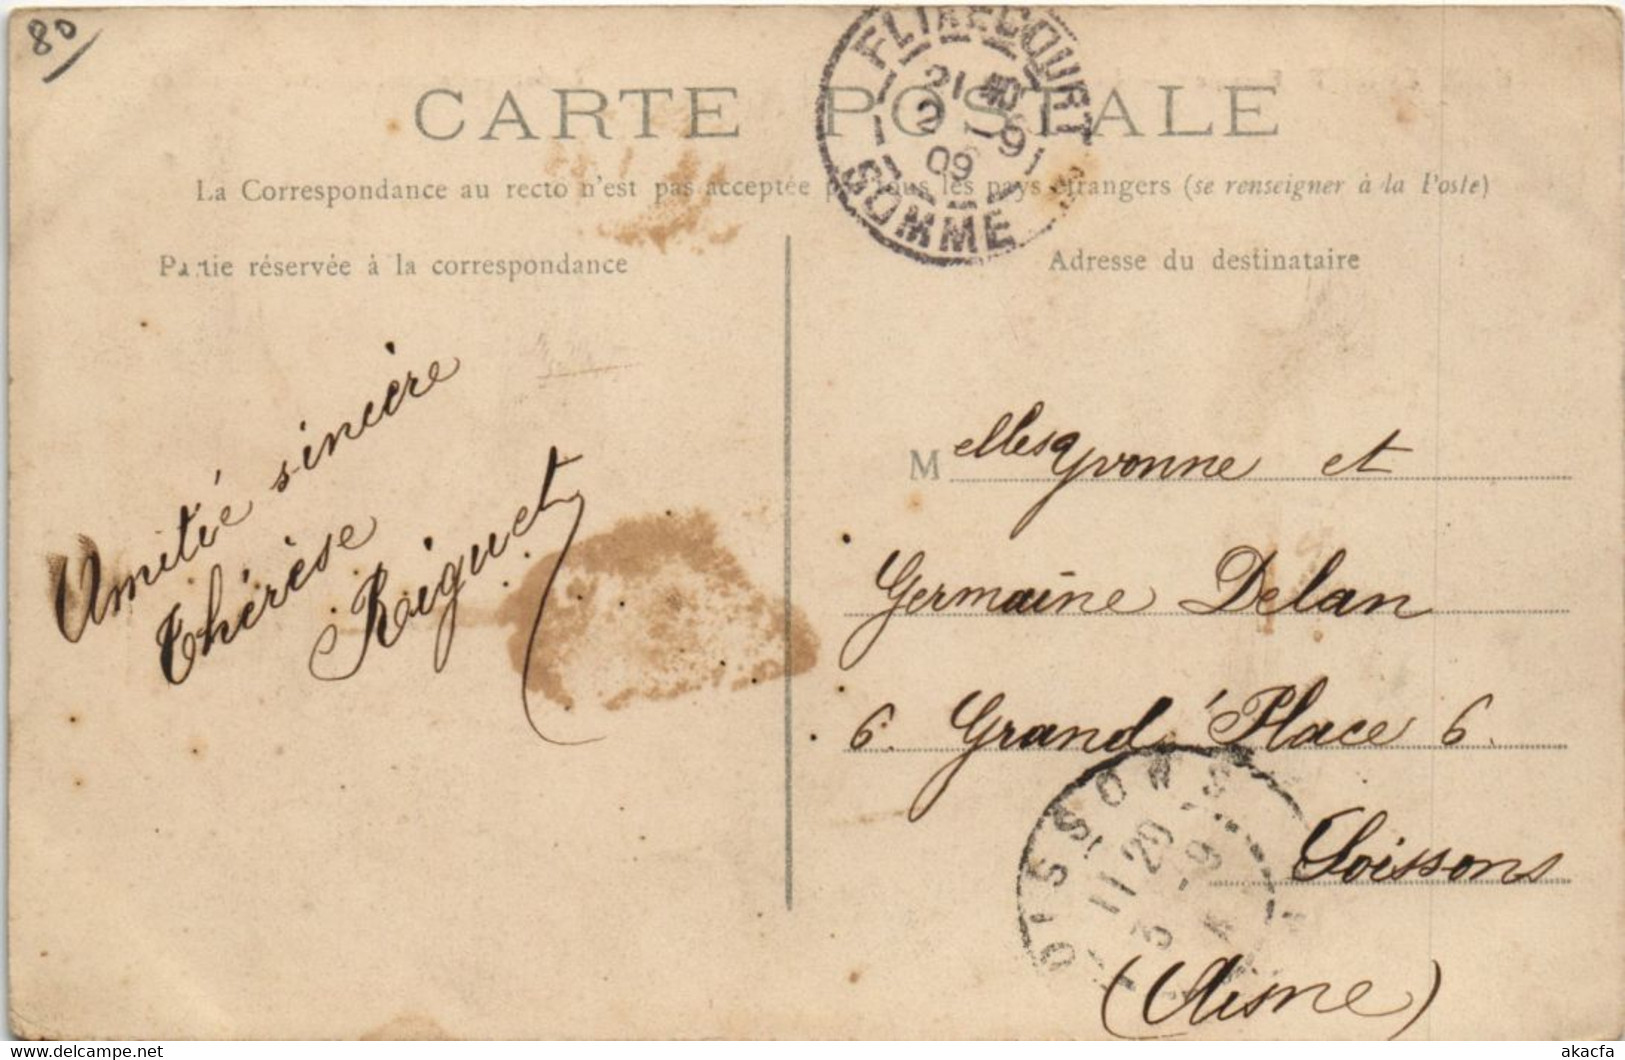 80
CARTE POSTALE
La Correspondance au recto n'est pas acceptée par tous les pays étrangers (se renseigner à la Poste)
Partie réservée à la correspondance
Adresse du destinataire
FLIXECOURT
09
SOMME
Amitié sincère
Thérèse
Riquet
Melles Yvonne et
Germaine Delan
6. Grand'Place 6.
Soissons
(Aisne)
SOISSONS
11 20
3 - 9
akacfa